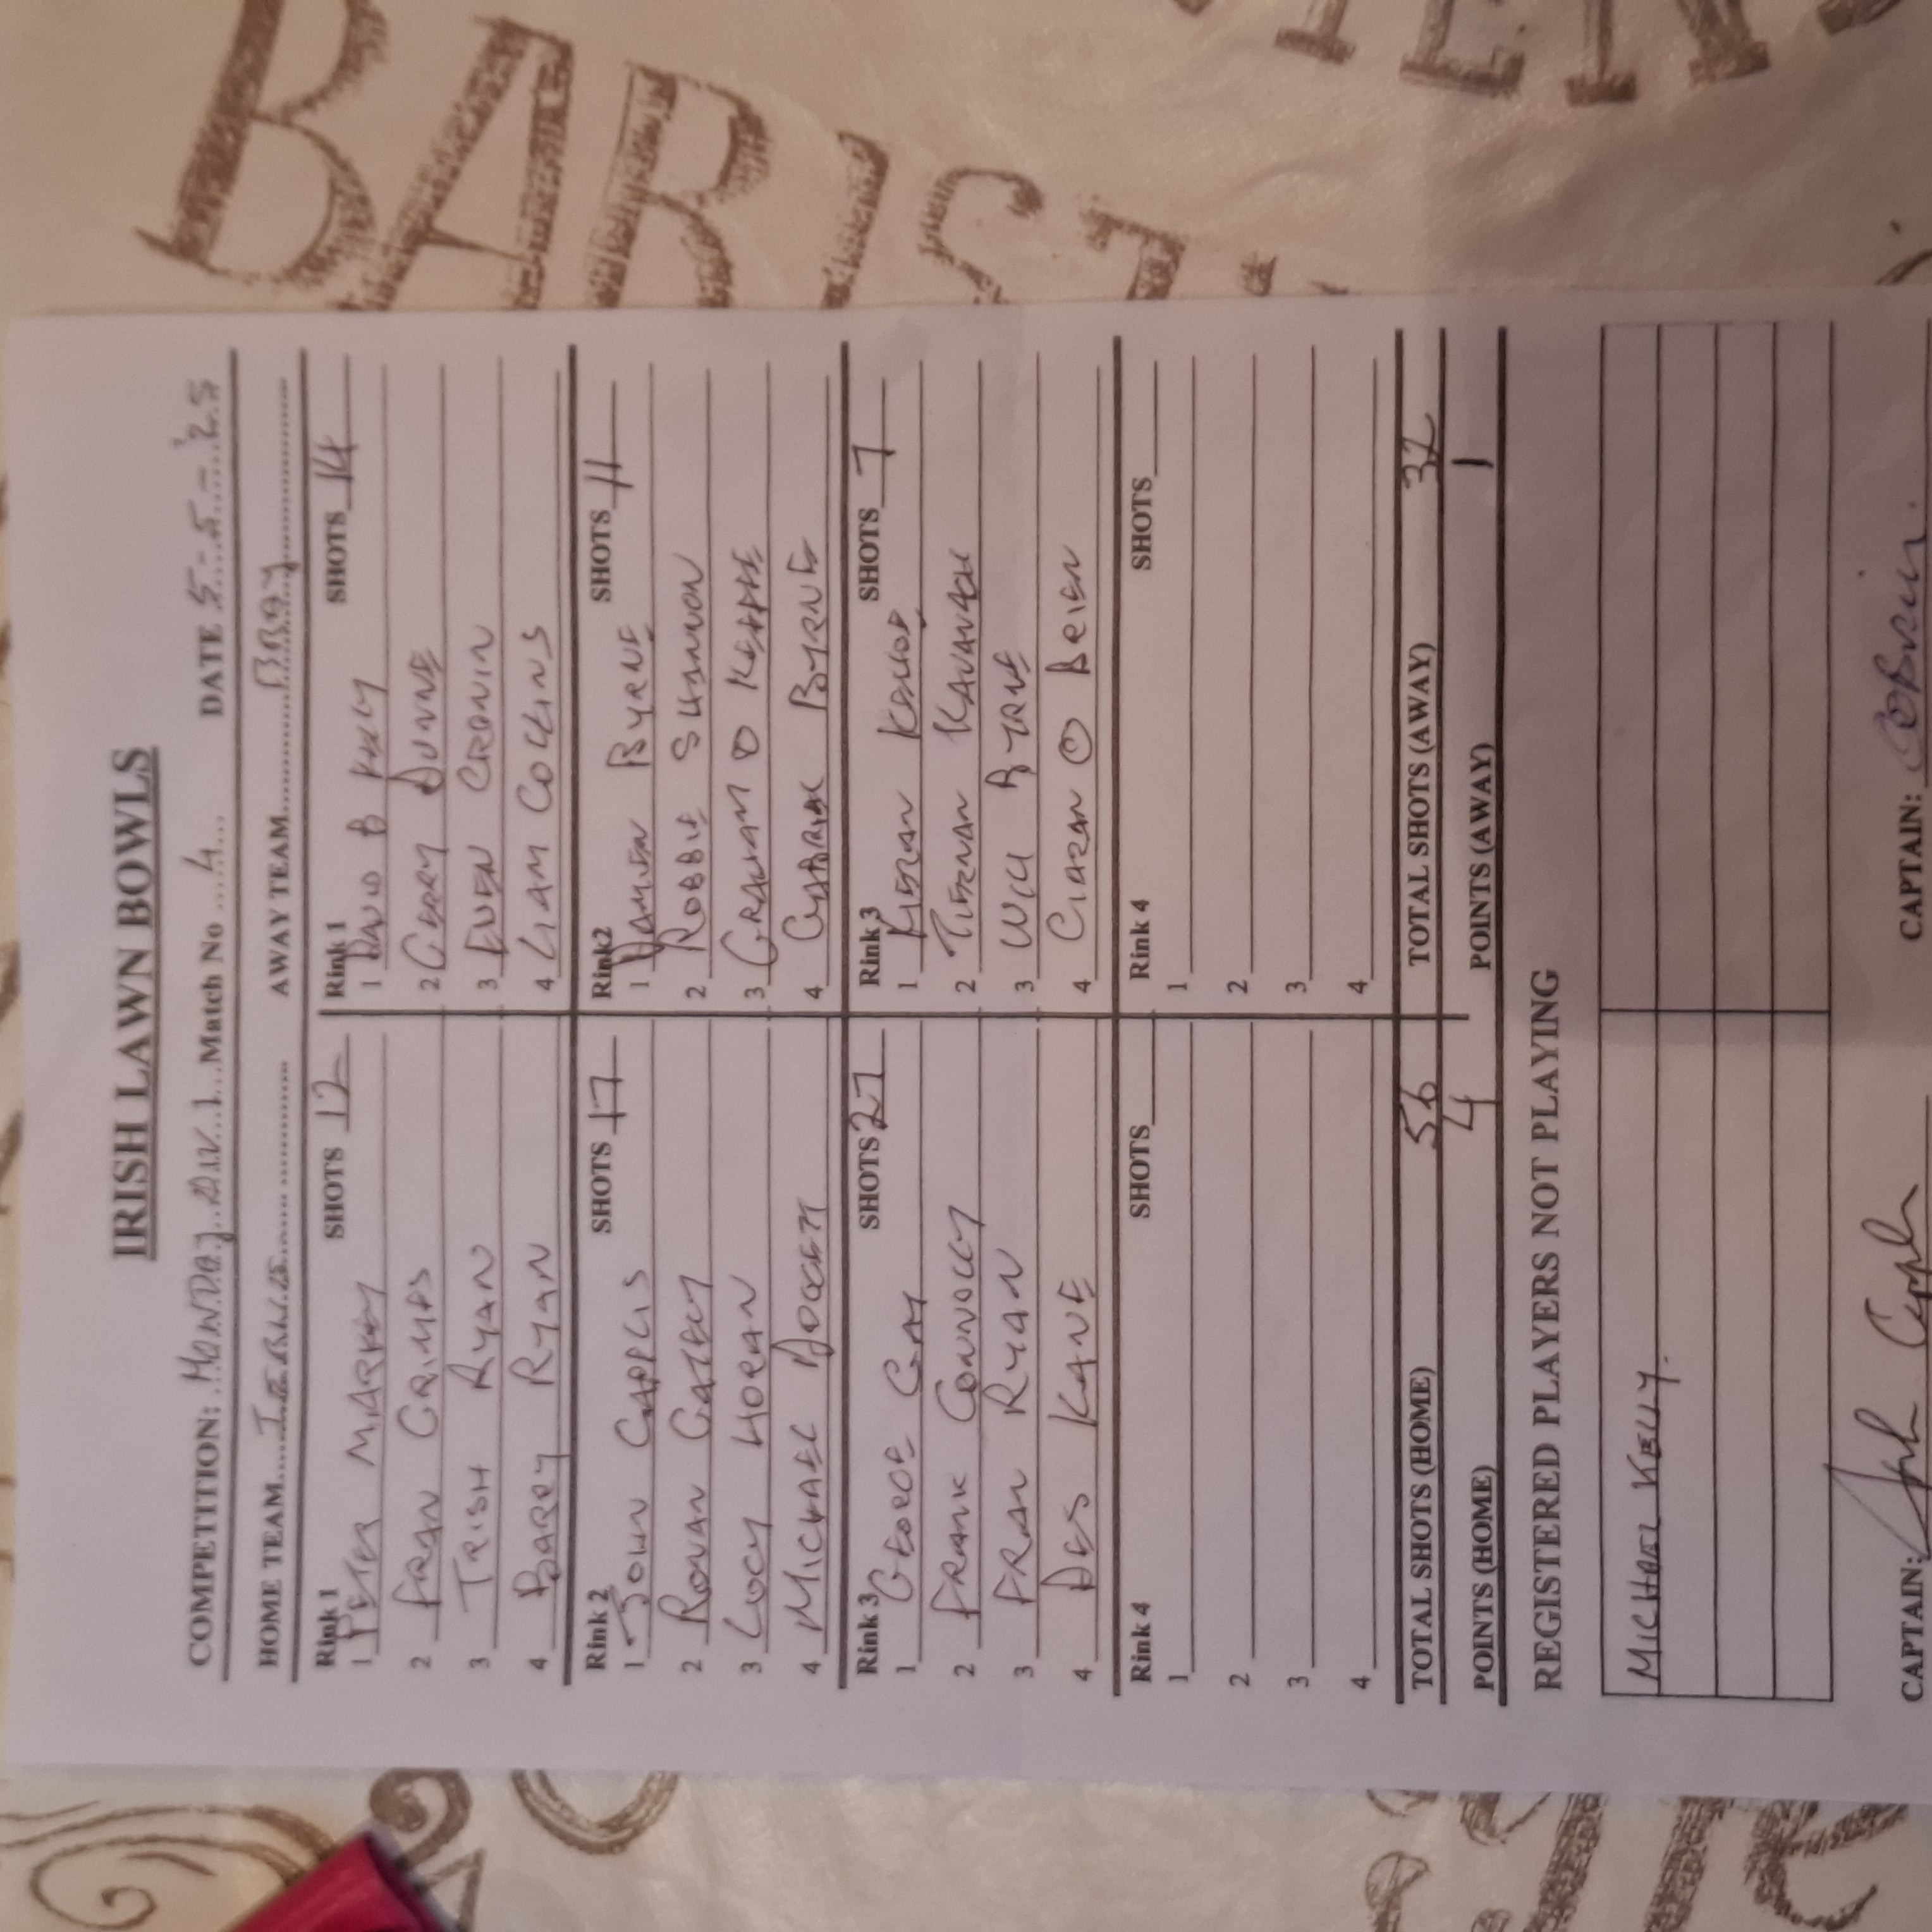 IRISH LAWN BOWLS
COMPETITION: MONDAY DIV. 1 Match No 4 DATE 5-5-'25
HOME TEAM AWAY TEAM BRAY
Rink 1 SHOTS 12 Rink 1 SHOTS 14
1 PETER MARKEY 1 DAVID B KELLY
2 FRAN GRIMES 2 GERRY DUNNE
3 TRISH RYAN 3 EVEN CRONIN
4 BARRY RYAN 4 LIAM COLLINS
Rink 2 SHOTS 17 Rink2 SHOTS 11
1 JOHN CAPPLIS 1 DAMIEN BYRNE
2 RONAN GATELY 2 ROBBIE SHANNON
3 LUCY HORAN 3 GRAHAM O KEEFFE
4 MICHAEL 4 BYRNE
Rink 3 SHOTS 27 Rink 3 SHOTS 7
1 GEORGE 1 KIERAN KEHOE
2 FRANK CONNOLLY 2 TIERNAN KAVANAGH
3 FRAN RYAN 3 WILL BYRNE
4 DES KANE 4 CIARAN O BRIEN
Rink 4 SHOTS Rink 4 SHOTS
1 1
2 2
3 3
4 4
TOTAL SHOTS (HOME) 56 TOTAL SHOTS (AWAY) 32
POINTS (HOME) 4 POINTS (AWAY) 1
REGISTERED PLAYERS NOT PLAYING
MICHAEL KELLY.
CAPTAIN: CAPTAIN: COBrien.